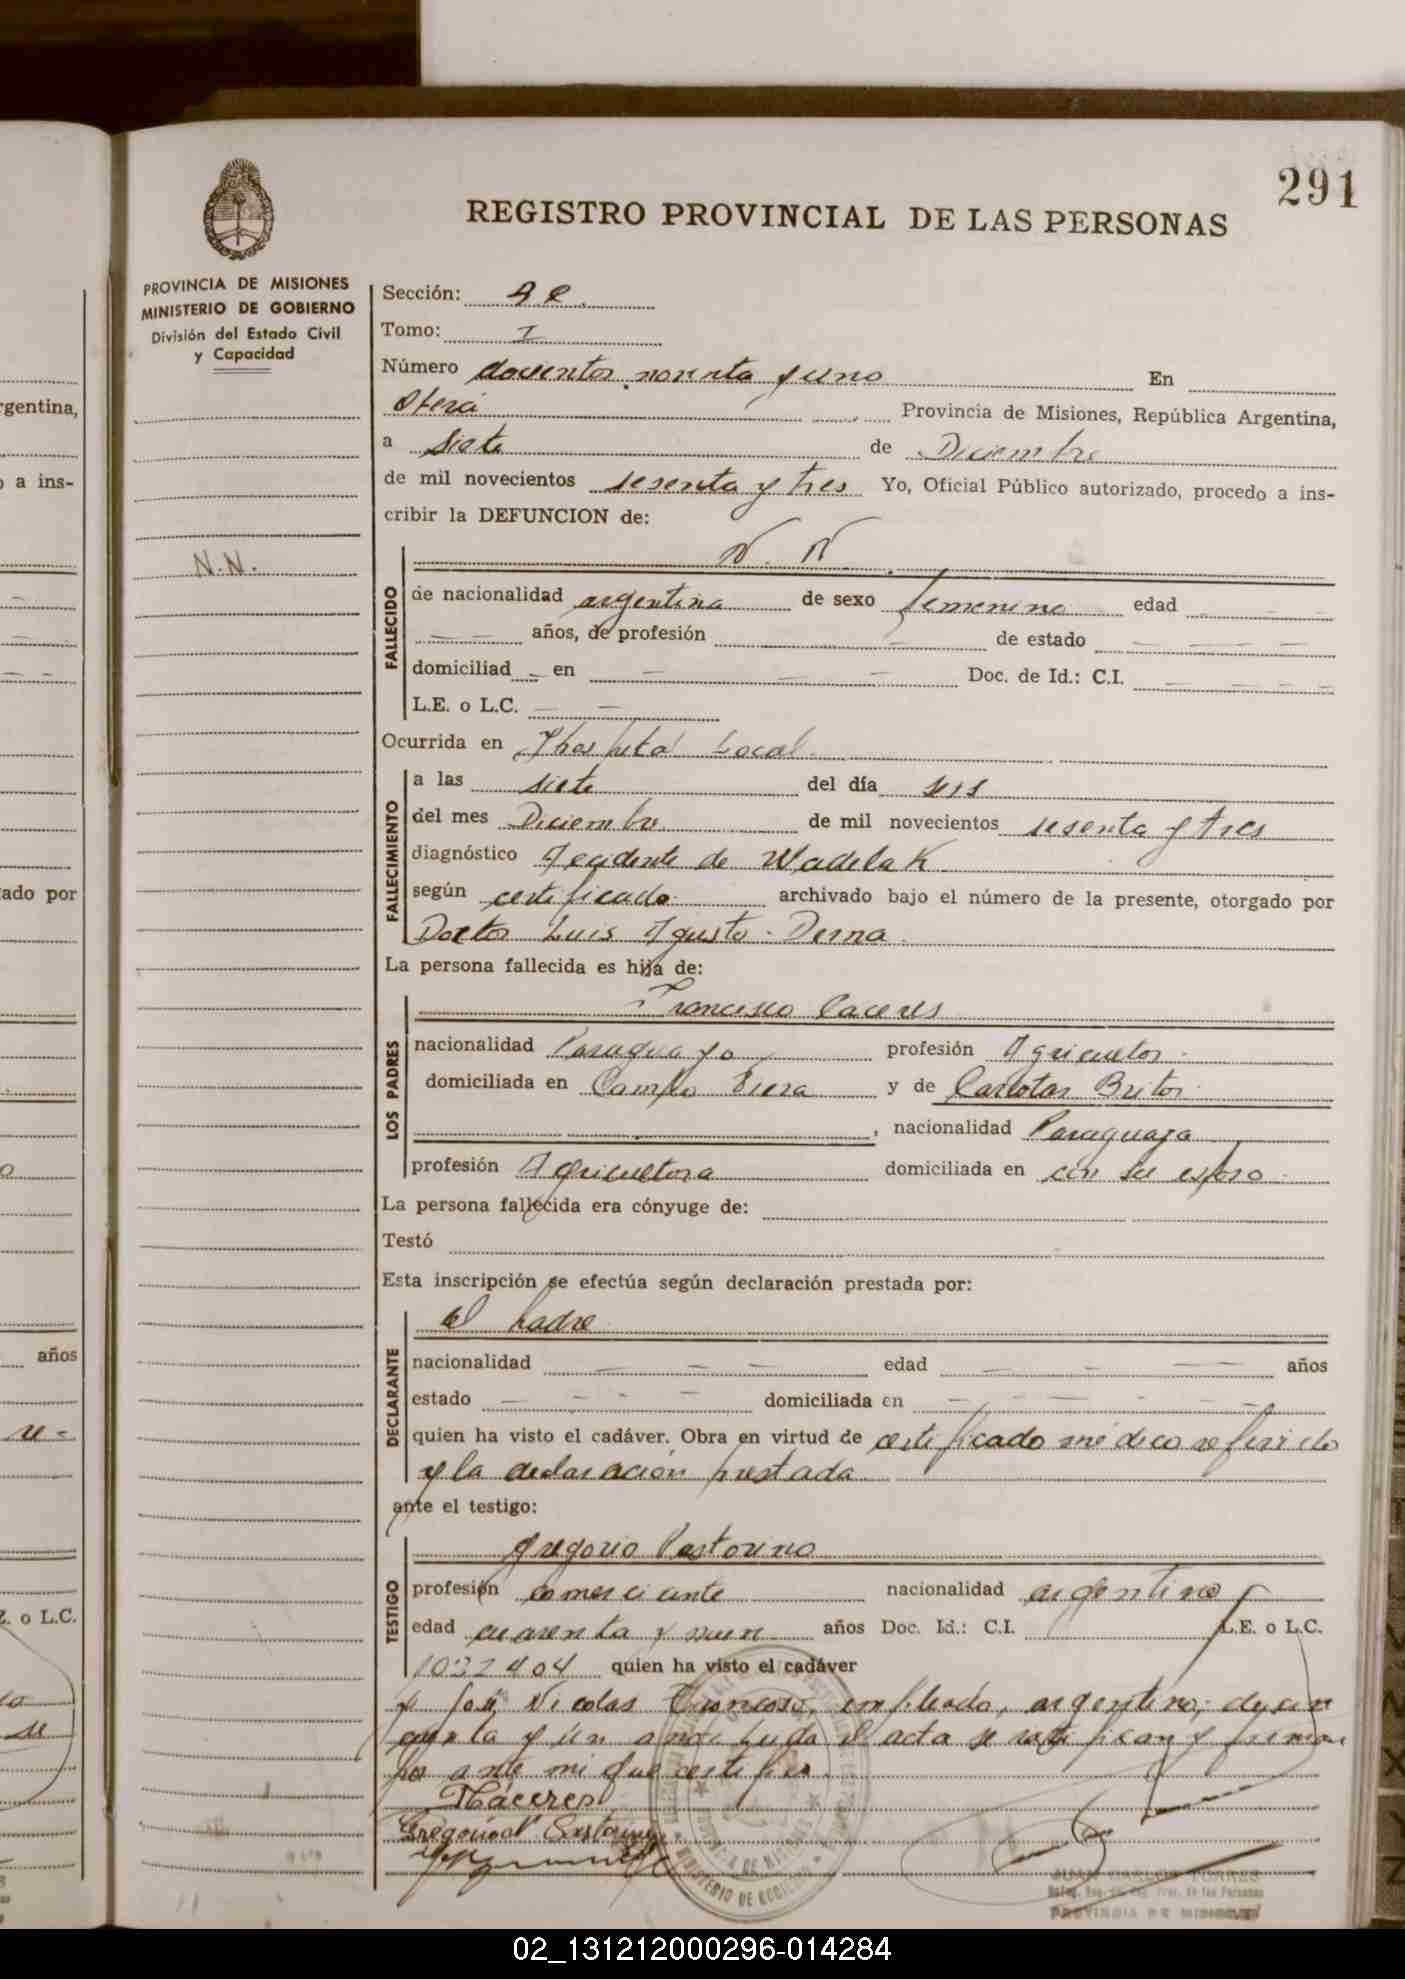 291
REGISTRO PROVINCIAL DE LAS PERSONAS
PROVINCIA DE MISIONES
MINISTERIO DE GOBIERNO
División del Estado Civil
y Capacidad
N.N.
Sección:
Tomo: I
Número docientos noventa y uno En
Provincia de Misiones, República Argentina,
a Siete de Diciembre
de mil novecientos sesenta y tres Yo, Oficial Público autorizado, procedo a ins-
cribir la DEFUNCION de:
N. N.
FALLECIDO
de nacionalidad argentina de sexo femenino edad
años, de profesión de estado
domiciliad en Doc. de Id.: C.I.
L.E. o L.C.
Ocurrida en Local
FALLECIMIENTO
a las siete del día seis
del mes Diciembre de mil novecientos sesenta y tres
diagnóstico de
según certificado archivado bajo el número de la presente, otorgado por
Doctor Luis Agusto Derna
La persona fallecida es hija de:
LOS PADRES
Francisco Caceres
nacionalidad Paraguayo profesión Agricultor
domiciliada en Campo Viera y de Carlota Britos
, nacionalidad Paraguaya
profesión Agricultora domiciliada en con su esposo
La persona fallecida era cónyuge de:
Testó
Esta inscripción se efectúa según declaración prestada por:
DECLARANTE
el padre
nacionalidad edad años
estado domiciliada en
quien ha visto el cadáver. Obra en virtud de certificado médico referido
y la declaración prestada
ante el testigo:
TESTIGO
Gregorio Pastorino
profesión comerciante nacionalidad argentino
edad cuarenta y años Doc. Id.: C.I. L.E. o L.C.
1032404 quien ha visto el cadáver
y José Nicolas empleado, argentino, de cin
cuenta y un años Leida el acta se ratifican y firman
por ante mi que certifico.
FCáceres
JUAN CARLOS TORRES
PROVINCIA DE MISIONES
rgentina,
o a ins-
ado por
años
Z. o L.C.
02_131212000296-014284